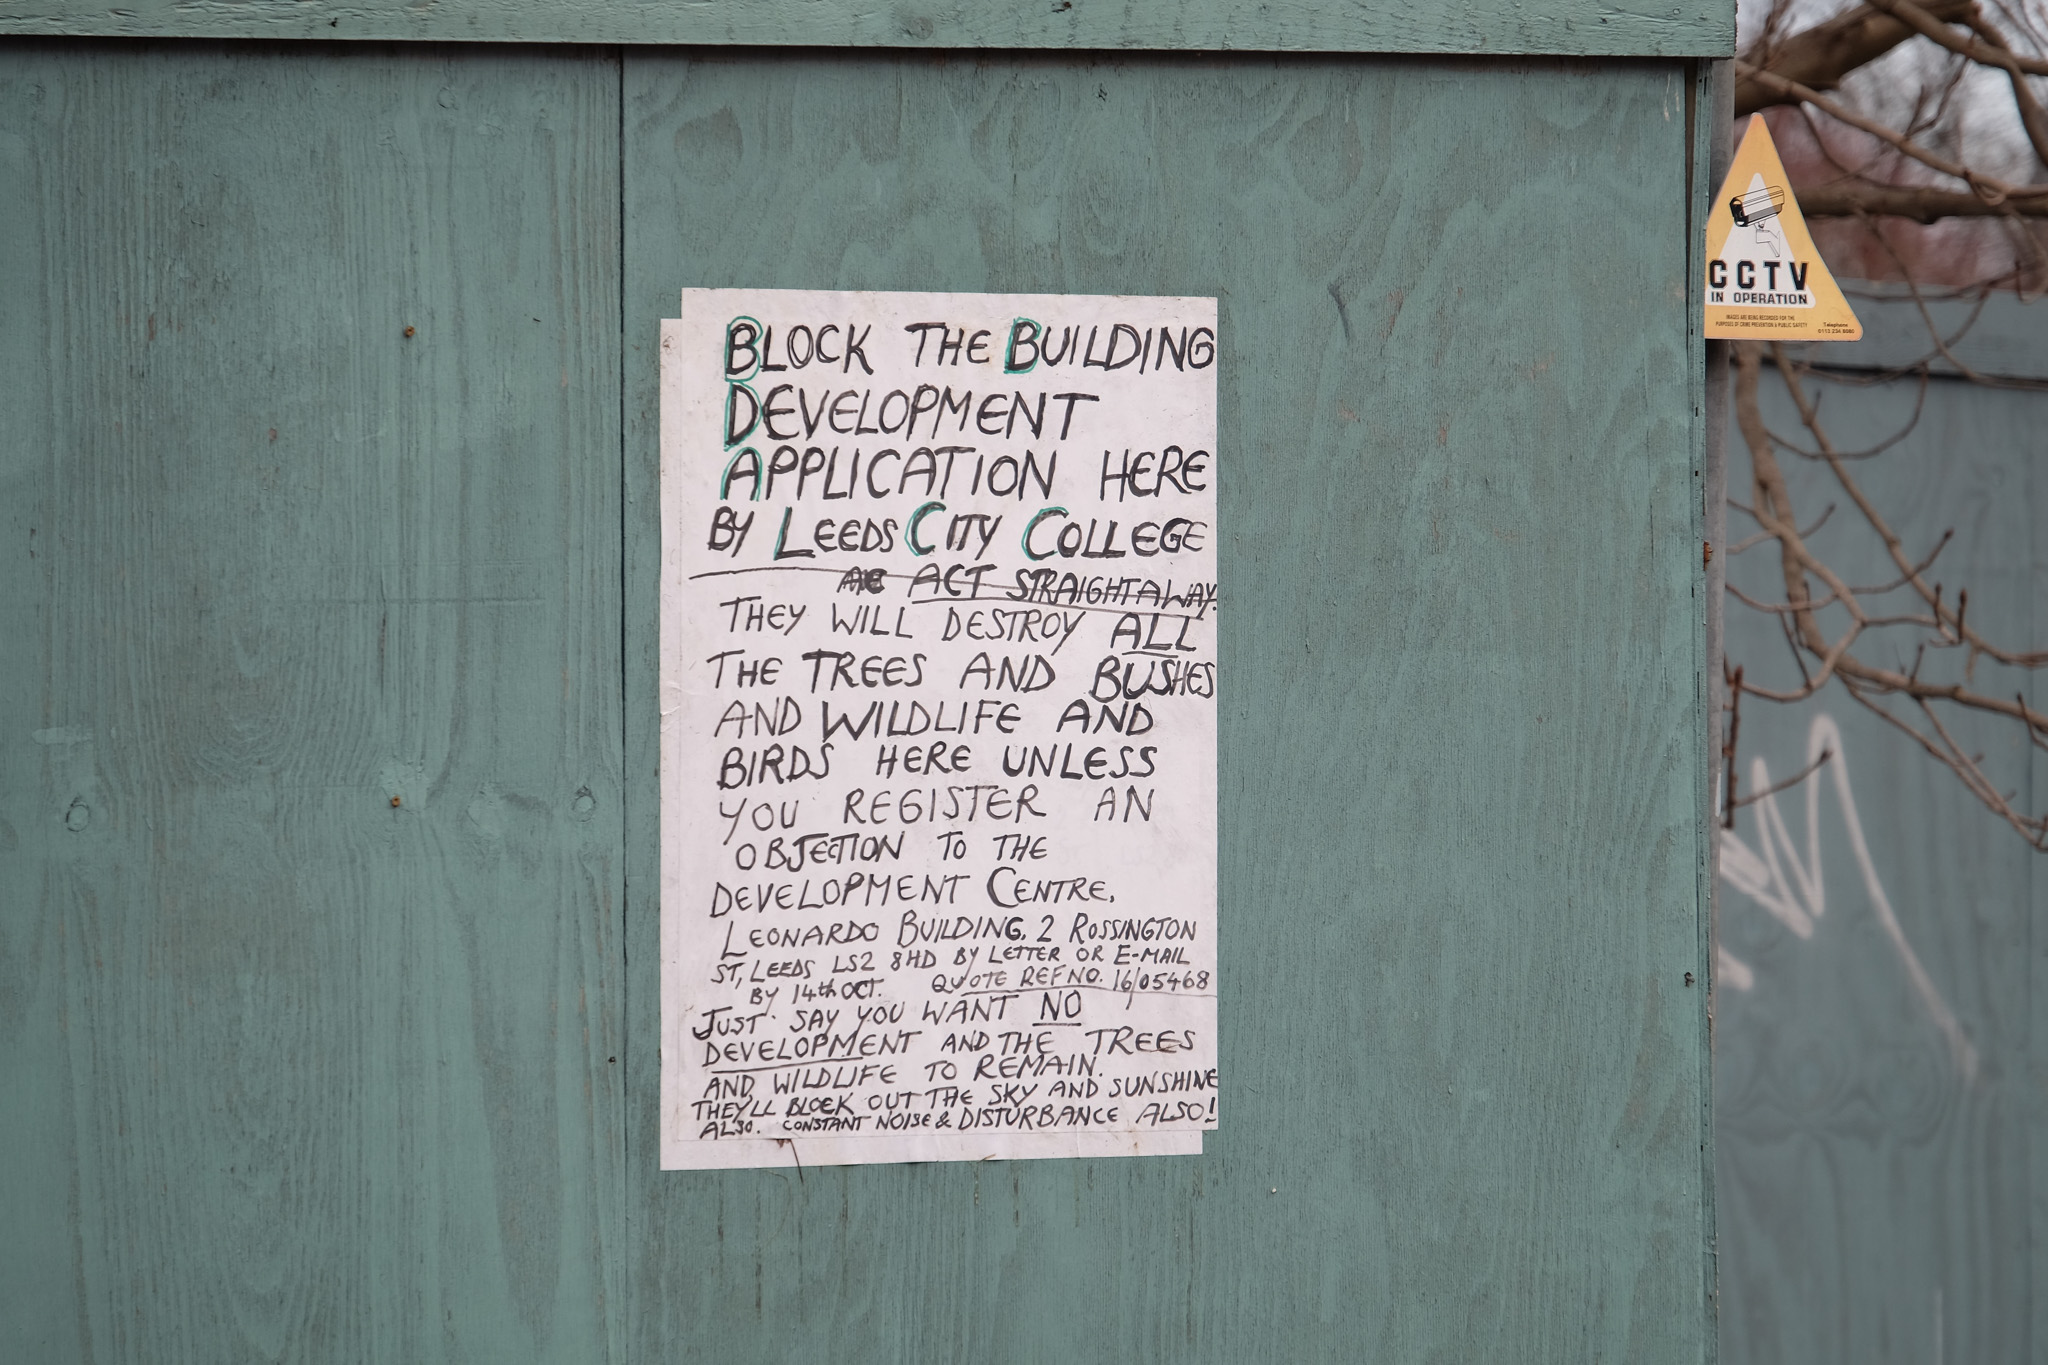 BLOCK THE BUILDING
DEVELOPMENT
APPLICATION HERE
BY LEEDS CITY COLLEGE
ACT STRAIGHTAWAY.
THEY WILL DESTROY ALL
THE TREES AND BUSHES
AND WILDLIFE AND
BIRDS HERE UNLESS
YOU REGISTER AN
OBJECTION TO THE
DEVELOPMENT CENTRE,
LEONARDO BUILDING, 2 ROSSINGTON
ST, LEEDS LS2 8HD BY LETTER OR E-MAIL
BY 14th OCT. QUOTE REF NO. 16/05468
JUST SAY YOU WANT NO
DEVELOPMENT AND THE TREES
AND WILDLIFE TO REMAIN.
THEY'LL BLOCK OUT THE SKY AND SUNSHINE
ALSO. CONSTANT NOISE & DISTURBANCE ALSO!
CCTV
IN OPERATION
IMAGES ARE BEING RECORDED FOR THE
PURPOSES OF CRIME PREVENTION & PUBLIC SAFETY
Telephone